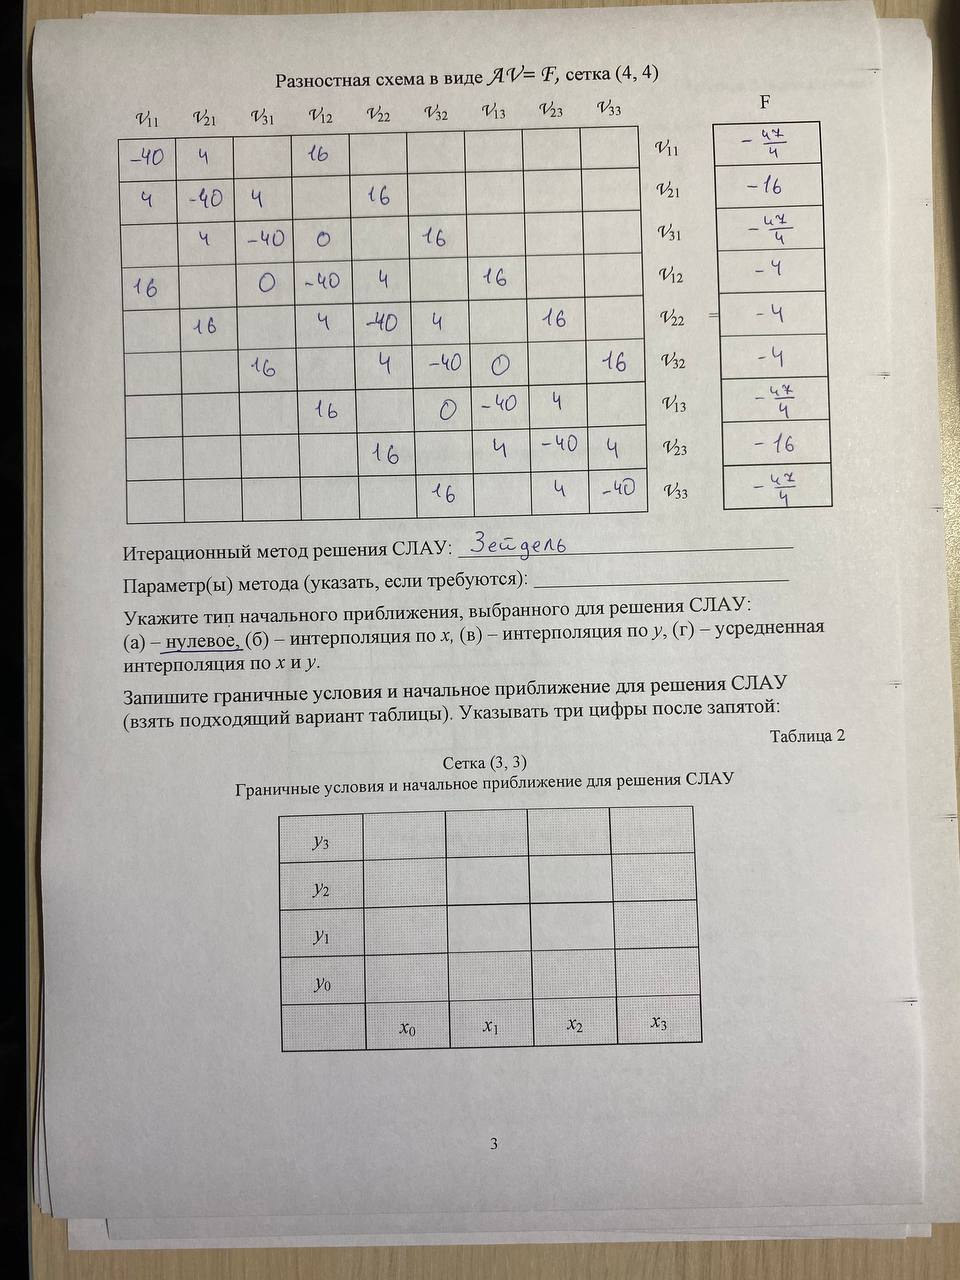 Разностная схема в виде AV= F, сетка (4, 4)
V11 V21 V31 V12 V22 V32 V13 V23 V33 F
-40 4 16 V11 - 47/4
4 -40 4 16 V21 -16
4 -40 0 16 V31 - 47/4
16 0 -40 4 16 V12 - 4
16 4 -40 4 16 V22 = - 4
16 4 -40 0 16 V32 - 4
16 0 -40 4 V13 - 47/4
16 4 -40 4 V23 - 16
16 4 -40 V33 - 47/4
Итерационный метод решения СЛАУ: Зейдель
Параметр(ы) метода (указать, если требуются):
Укажите тип начального приближения, выбранного для решения СЛАУ:
(а) – нулевое, (б) – интерполяция по x, (в) – интерполяция по y, (г) – усредненная
интерполяция по x и y.
Запишите граничные условия и начальное приближение для решения СЛАУ
(взять подходящий вариант таблицы). Указывать три цифры после запятой:
Таблица 2
Сетка (3, 3)
Граничные условия и начальное приближение для решения СЛАУ
y3
y2
y1
y0
x0 x1 x2 x3
3